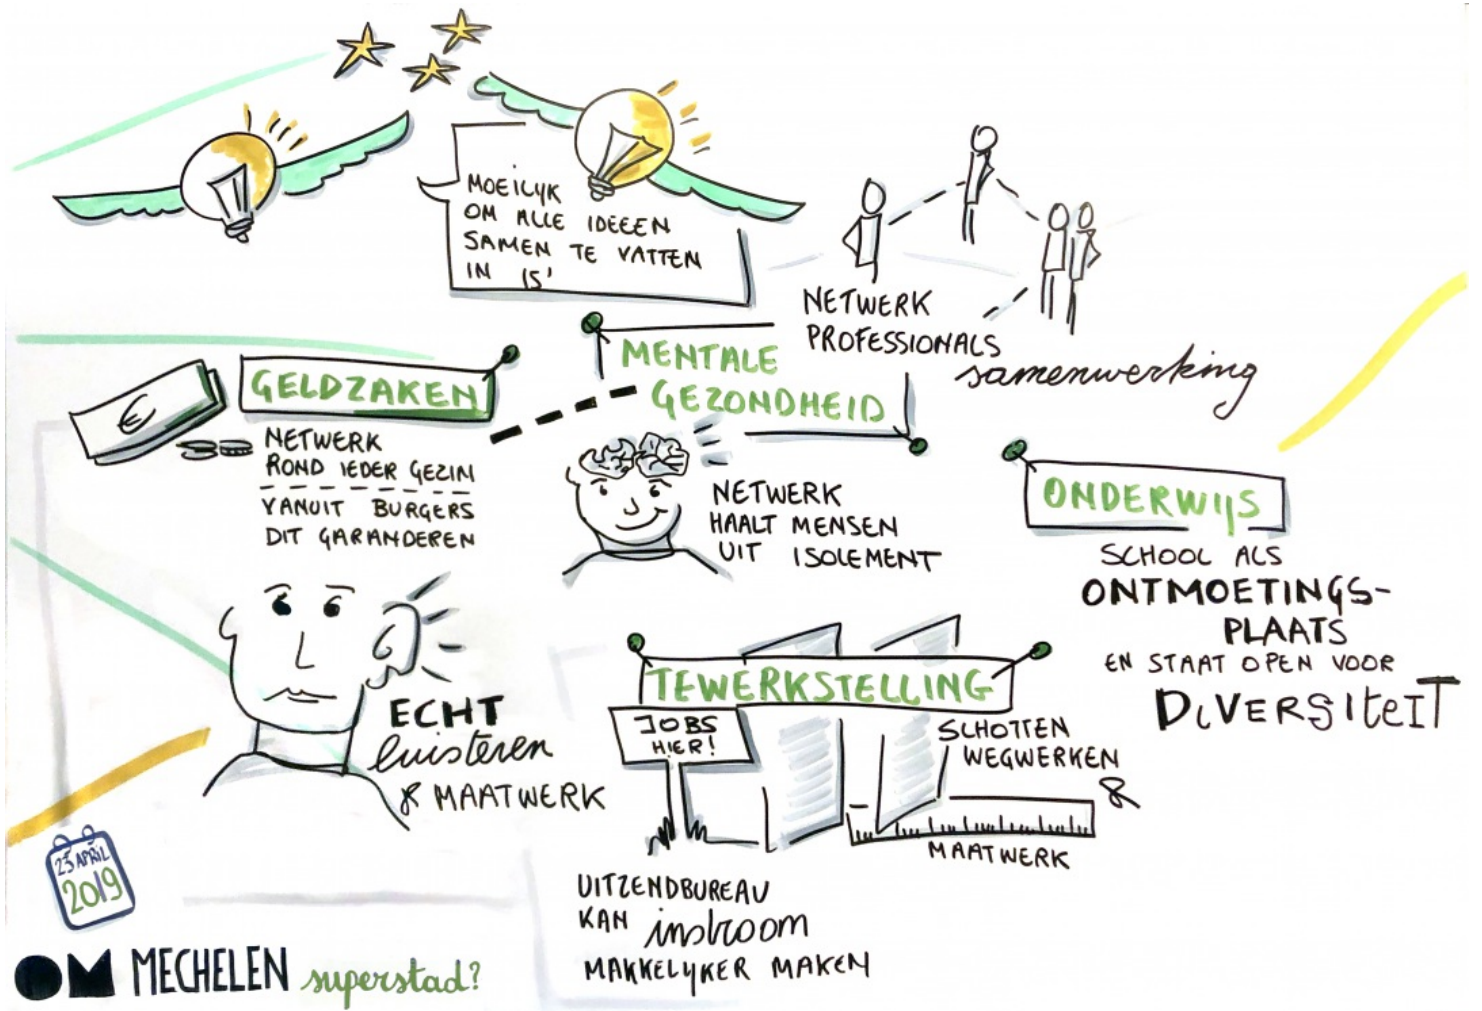 MOEILIJK
OM ALLE IDEEEN
SAMEN TE VATTEN
IN 15'
NETWERK
PROFESSIONALS
samenwerking
GELDZAKEN
€
NETWERK
ROND IEDER GEZIN
VANUIT BURGERS
DIT GARANDEREN
MENTALE
GEZONDHEID
NETWERK
HAALT MENSEN
UIT ISOLEMENT
ONDERWIJS
SCHOOL ALS
ONTMOETINGS-
PLAATS
EN STAAT OPEN VOOR
DIVERSITEIT
ECHT
luisteren
& MAATWERK
TEWERKSTELLING
JOBS
HIER!
SCHOTTEN
WEGWERKEN
&
MAATWERK
UITZENDBUREAU
KAN instroom
MAKKELIJKER MAKEN
23 APRIL
2019
OM MECHELEN superstad?